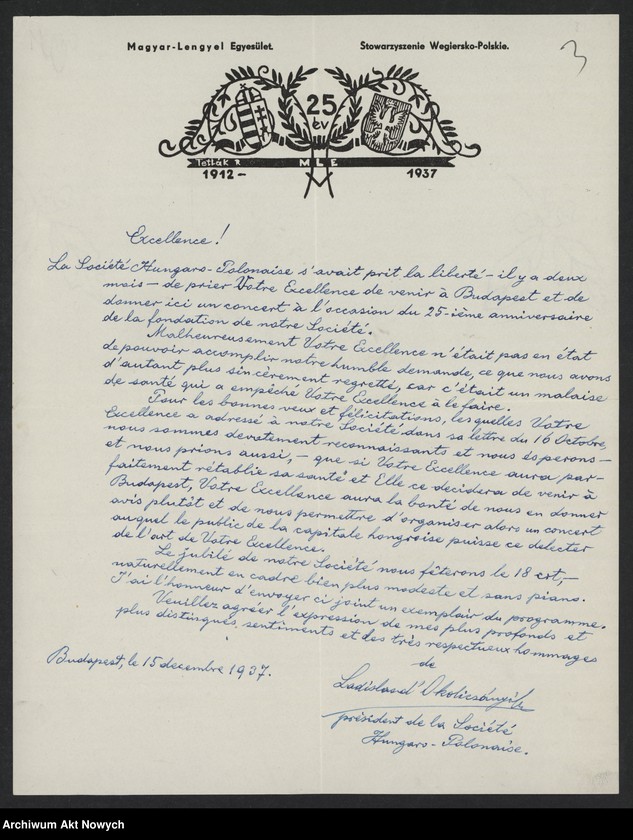 Magyar-Lengyel Egyesület.
Stowarzyszenie Wegiersko-Polskie.
3
25
év
Tetlák R
M L E
1912 –
1937
Excellence!
La Société Hungaro-Polonaise s'avait prit la liberté – il y a deux
mois – de prier Votre Excellence de venir à Budapest et de
donner ici un concert à l'occasion du 25-ième anniversaire
de la fondation de notre Société.
Malheureusement Votre Excellence n'était pas en état
de pouvoir accomplir notre humble demande, ce que nous avons
d'autant plus sincèrement regretté, car c'était un malaise
de santé qui a empêché Votre Excellence à le faire.
Pour les bonnes veux et félicitations, lesquelles Votre
Excellence a adressé à notre Société dans sa lettre du 16 Octobre,
nous sommes devotement reconnaissants et nous ésperons –
et nous prions aussi, – que si Votre Excellence aura par-
faitement rétablie sa santé et Elle ce decidera de venir à
Budapest, Votre Excellence aura la bonté de nous en donner
avis plutôt et de nous permettre d'organiser alors un concert
auquel le public de la capitale hongroise puisse ce delecter
de l'art de Votre Excellence.
Le jubilé de notre Société nous fêterons le 18 crt, –
naturellement en cadre bien plus modeste et sans piano.
J'ai l'honneur d'envoyer ci joint un exemplair du programme.
Veuillez agréer l'expression de mes plus profonds et
plus distingués sentiments et les très respectueux hommages
de
Budapest, le 15 decembre 1937.
Ladislas d'Okolicsányi
président de la Société
Hungaro-Polonaise.
Archiwum Akt Nowych